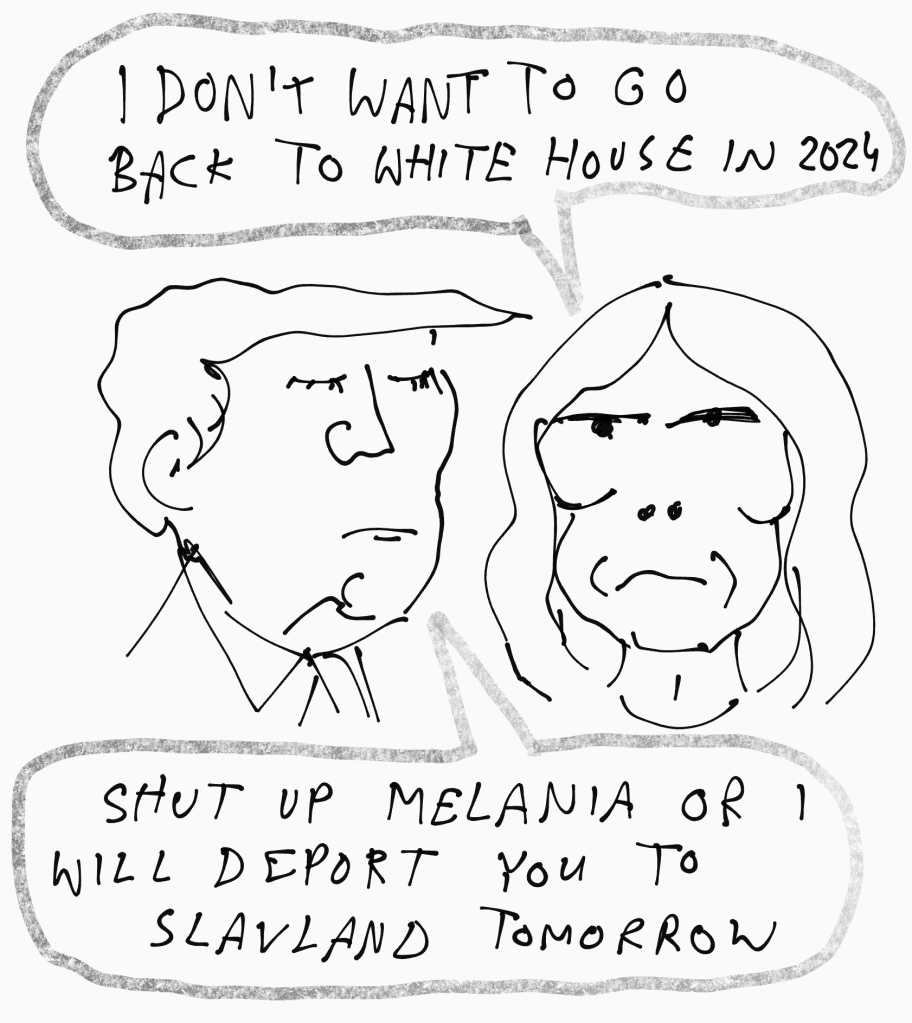 I DON'T WANT TO GO
BACK TO WHITE HOUSE IN 2024
SHUT UP MELANIA OR I
WILL DEPORT YOU TO
SLAVLAND TOMORROW